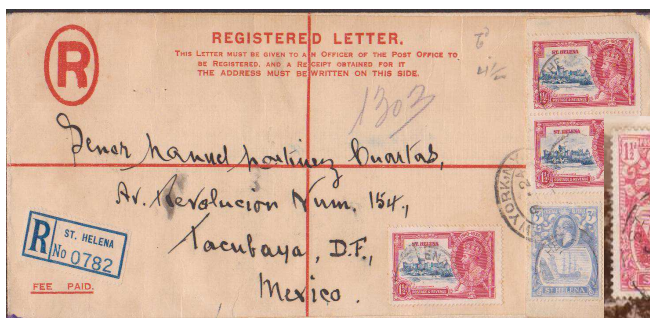 REGISTERED LETTER.
THIS LETTER MUST BE GIVEN TO AN OFFICER OF THE POST OFFICE TO
BE REGISTERED, AND A RECEIPT OBTAINED FOR IT
THE ADDRESS MUST BE WRITTEN ON THIS SIDE.
R
1303
Senor Manuel Martinez Cuartas,
Av. Revolucion Num. 154,
Tacubaya, D.F.,
Mexico.
R
ST. HELENA
No 0782
FEE PAID.
ST. HELENA
1½d
ST. HELENA
1½d
ST. HELENA
1½d
3d
ST HELENA
1½